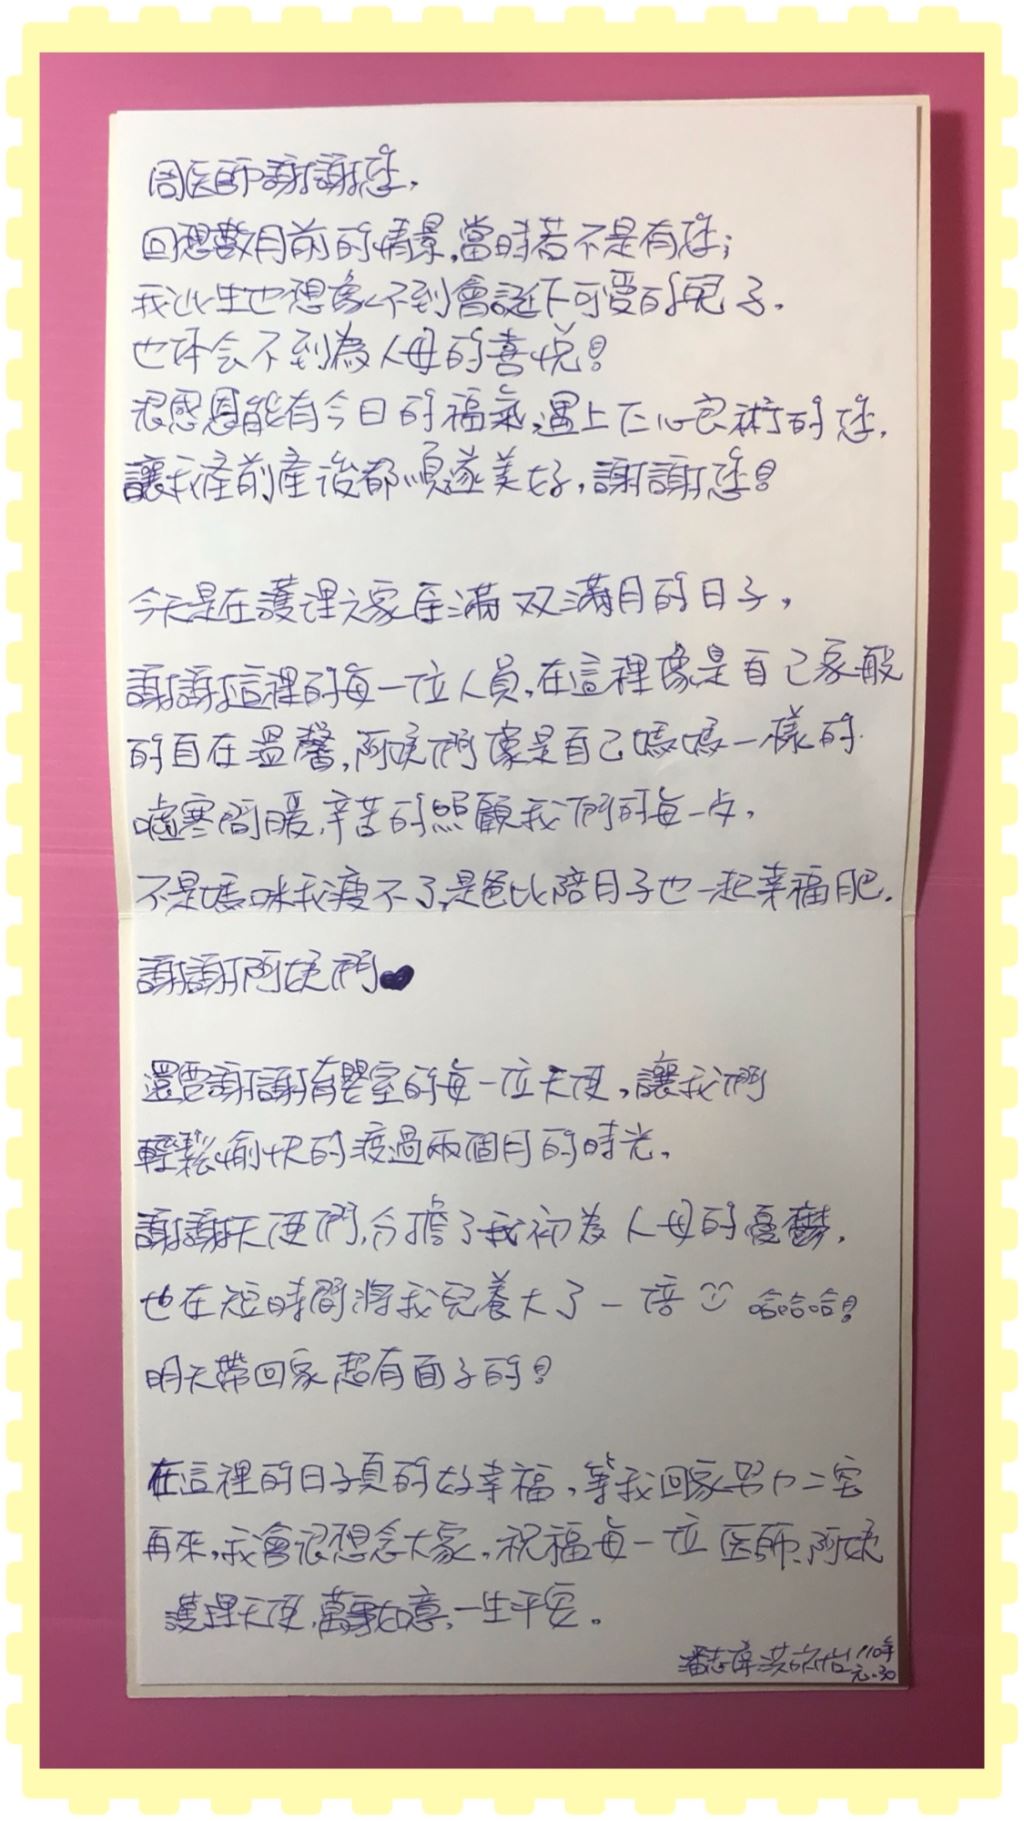 周医師謝謝您,
回想數月前的情景,當時若不是有您;
我此生也想像不到會誕下可愛的兒子.
也体会不到為人母的喜悅!
很感恩能有今日的福氣,遇上仁心良術的您,
讓我產前產後都順遂美好,謝謝您!
今天是在護理之家坐滿双滿月的日子,
謝謝這裡的每一位人員,在這裡像是自己家般
的自在溫馨,阿姨們像是自己媽媽一樣的
噓寒問暖,辛苦的照顧我們的每一天,
不是媽咪我瘦不了,是爸比陪月子也一起幸福肥.
謝謝阿姨們♥
還要謝謝育嬰室的每一位天使,讓我們
輕鬆愉快的渡過兩個月的時光.
謝謝天使們,分擔了我初為人母的憂鬱,
也在短時間將我兒養大了一倍☺ 哈哈哈!
明天帶回家超有面子的!
在這裡的日子真的好幸福,等我回家努力二宝
再來,我會很想念大家,祝福每一位医師、阿姨
護理天使,萬事如意,一生平安。
潘志 洪 怡 110年
元.30